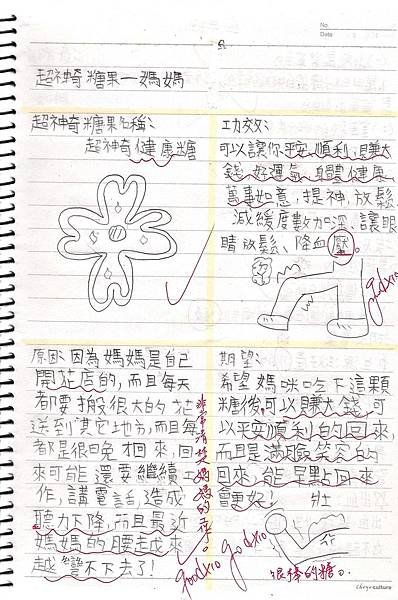 No.
Date
超神奇糖果—媽媽
超神奇糖果名稱:
超神奇健康糖
功效:
可以讓你平安順利、賺大
錢、好運氣、身體健康、
萬事如意,提神、放鬆、
減緩度數加深、讓眼
睛放鬆、降血壓。
goodx10
原因:因為媽媽是自己
開花店的,而且每天
都要搬很大的花
送到其它地方,而且每天
都是很晚回來,回
來可能還要繼續工
作,講電話,造成
聽力下降,而且最近
媽媽的腰越來
越彎不下去了!
非常清楚媽媽的辛
goodx10
期望:
希望媽咪吃下這顆
糖後,可以賺大錢,可
以平安順利的回來,
而且是滿臉笑容的
回來,能早點回來
會更好!
壯
godx10
很棒的糖。
Chryculture